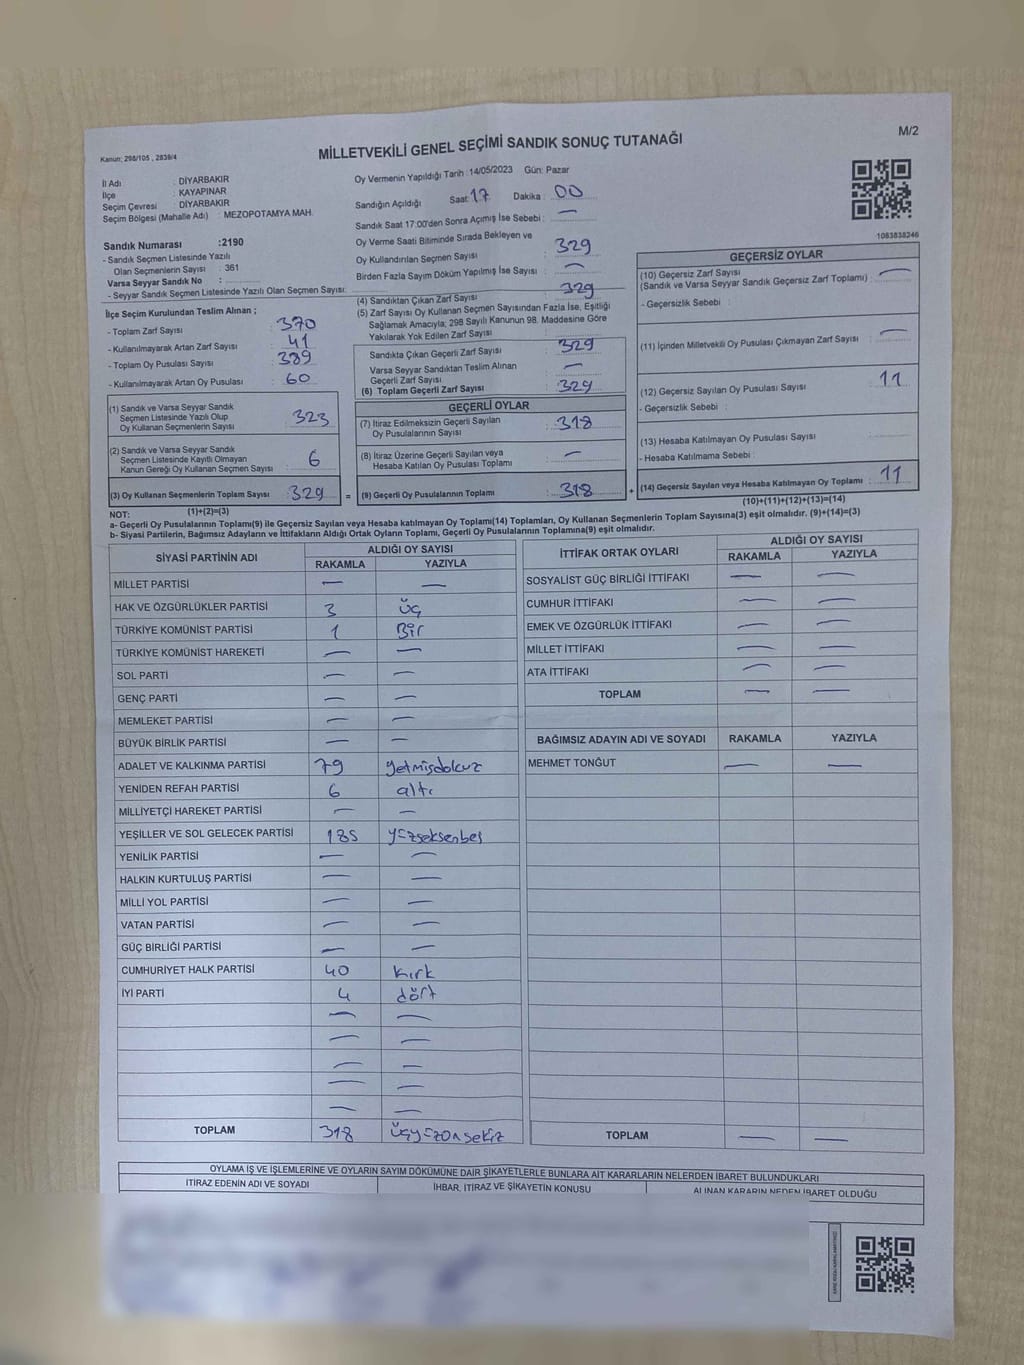 M/2
Kanun; 298/105 , 2839/4
MİLLETVEKİLİ GENEL SEÇİMİ SANDIK SONUÇ TUTANAĞI
İl Adı : DİYARBAKIR
İlçe : KAYAPINAR
Seçim Çevresi : DİYARBAKIR
Seçim Bölgesi (Mahalle Adı) : MEZOPOTAMYA MAH.
Sandık Numarası :2190
- Sandık Seçmen Listesinde Yazılı
Olan Seçmenlerin Sayısı : 361
Varsa Seyyar Sandık No :
- Seyyar Sandık Seçmen Listesinde Yazılı Olan Seçmen Sayısı:
İlçe Seçim Kurulundan Teslim Alınan ;
- Toplam Zarf Sayısı : 370
- Kullanılmayarak Artan Zarf Sayısı : 41
- Toplam Oy Pusulası Sayısı : 389
- Kullanılmayarak Artan Oy Pusulası : 60
(1) Sandık ve Varsa Seyyar Sandık
Seçmen Listesinde Yazılı Olup
Oy Kullanan Seçmenlerin Sayısı : 323
(2) Sandık ve Varsa Seyyar Sandık
Seçmen Listesinde Kayıtlı Olmayan
Kanun Gereği Oy Kullanan Seçmen Sayısı : 6
(3) Oy Kullanan Seçmenlerin Toplam Sayısı : 329 =
Oy Vermenin Yapıldığı Tarih :14/05/2023 Gün: Pazar
Sandığın Açıldığı Saat: 17 Dakika : 00
Sandık Saat 17:00'den Sonra Açımış İse Sebebi : —
Oy Verme Saati Bitiminde Sırada Bekleyen ve
Oy Kullandırılan Seçmen Sayısı : 329
Birden Fazla Sayım Döküm Yapılmış İse Sayısı : —
(4) Sandıktan Çıkan Zarf Sayısı : 329
(5) Zarf Sayısı Oy Kullanan Seçmen Sayısından Fazla İse, Eşitliği
Sağlamak Amacıyla; 298 Sayılı Kanunun 98. Maddesine Göre
Yakılarak Yok Edilen Zarf Sayısı :
Sandıkta Çıkan Geçerli Zarf Sayısı : 329
Varsa Seyyar Sandıktan Teslim Alınan
Geçerli Zarf Sayısı : —
(6) Toplam Geçerli Zarf Sayısı : 329
GEÇERLİ OYLAR
(7) İtiraz Edilmeksizin Geçerli Sayılan
Oy Pusulalarının Sayısı : 318
(8) İtiraz Üzerine Geçerli Sayılan veya
Hesaba Katılan Oy Pusulası Toplamı : —
(9) Geçerli Oy Pusulalarının Toplamı : 318 +
1083838246
GEÇERSİZ OYLAR
(10) Geçersiz Zarf Sayısı
(Sandık ve Varsa Seyyar Sandık Geçersiz Zarf Toplamı) : —
- Geçersizlik Sebebi :
(11) İçinden Milletvekili Oy Pusulası Çıkmayan Zarf Sayısı : —
(12) Geçersiz Sayılan Oy Pusulası Sayısı : 11
- Geçersizlik Sebebi :
(13) Hesaba Katılmayan Oy Pusulası Sayısı :
- Hesaba Katılmama Sebebi :
(14) Geçersiz Sayılan veya Hesaba Katılmayan Oy Toplamı : 11
NOT: (1)+(2)=(3)
(10)+(11)+(12)+(13)=(14)
a- Geçerli Oy Pusulalarının Toplamı(9) ile Geçersiz Sayılan veya Hesaba katılmayan Oy Toplamı(14) Toplamları, Oy Kullanan Seçmenlerin Toplam Sayısına(3) eşit olmalıdır. (9)+(14)=(3)
b- Siyasi Partilerin, Bağımsız Adayların ve İttifakların Aldığı Ortak Oyların Toplamı, Geçerli Oy Pusulalarının Toplamına(9) eşit olmalıdır.
SİYASİ PARTİNİN ADI ALDIĞI OY SAYISI
RAKAMLA YAZIYLA
MİLLET PARTİSİ — —
HAK VE ÖZGÜRLÜKLER PARTİSİ 3 üç
TÜRKİYE KOMÜNİST PARTİSİ 1 Bir
TÜRKİYE KOMÜNİST HAREKETİ — —
SOL PARTİ — —
GENÇ PARTİ — —
MEMLEKET PARTİSİ — —
BÜYÜK BİRLİK PARTİSİ — —
ADALET VE KALKINMA PARTİSİ 79 yetmişdokuz
YENİDEN REFAH PARTİSİ 6 altı
MİLLİYETÇİ HAREKET PARTİSİ — —
YEŞİLLER VE SOL GELECEK PARTİSİ 185 yüzseksenbeş
YENİLİK PARTİSİ — —
HALKIN KURTULUŞ PARTİSİ — —
MİLLİ YOL PARTİSİ — —
VATAN PARTİSİ — —
GÜÇ BİRLİĞİ PARTİSİ — —
CUMHURİYET HALK PARTİSİ 40 kırk
İYİ PARTİ 4 dört
— —
— —
— —
— —
— —
TOPLAM 318 üçyüzonsekiz
İTTİFAK ORTAK OYLARI ALDIĞI OY SAYISI
RAKAMLA YAZIYLA
SOSYALİST GÜÇ BİRLİĞİ İTTİFAKI — —
CUMHUR İTTİFAKI — —
EMEK VE ÖZGÜRLÜK İTTİFAKI — —
MİLLET İTTİFAKI — —
ATA İTTİFAKI — —
TOPLAM — —
BAĞIMSIZ ADAYIN ADI VE SOYADI RAKAMLA YAZIYLA
MEHMET TONĞUT — —
TOPLAM — —
OYLAMA İŞ VE İŞLEMLERİNE VE OYLARIN SAYIM DÖKÜMÜNE DAİR ŞİKAYETLERLE BUNLARA AİT KARARLARIN NELERDEN İBARET BULUNDUKLARI
İTİRAZ EDENİN ADI VE SOYADI İHBAR, İTİRAZ VE ŞİKAYETİN KONUSU ALINAN KARARIN NEDEN İBARET OLDUĞU